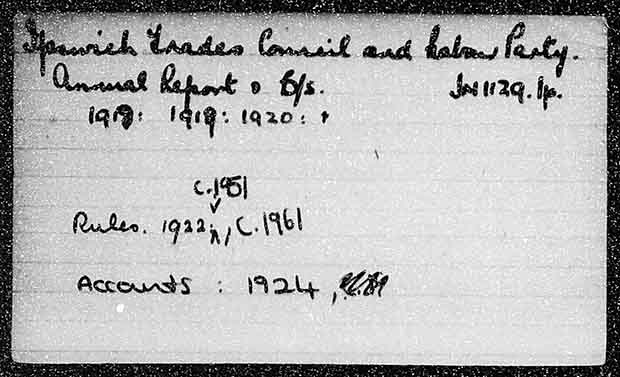 Ipswich Trades Council and Labour Party.
Annual Report & B/s. JN 1129. Ip.
1918: 1919: 1920: +
c.1951
Rules. 1922; , C.1961
Accounts : 1924,